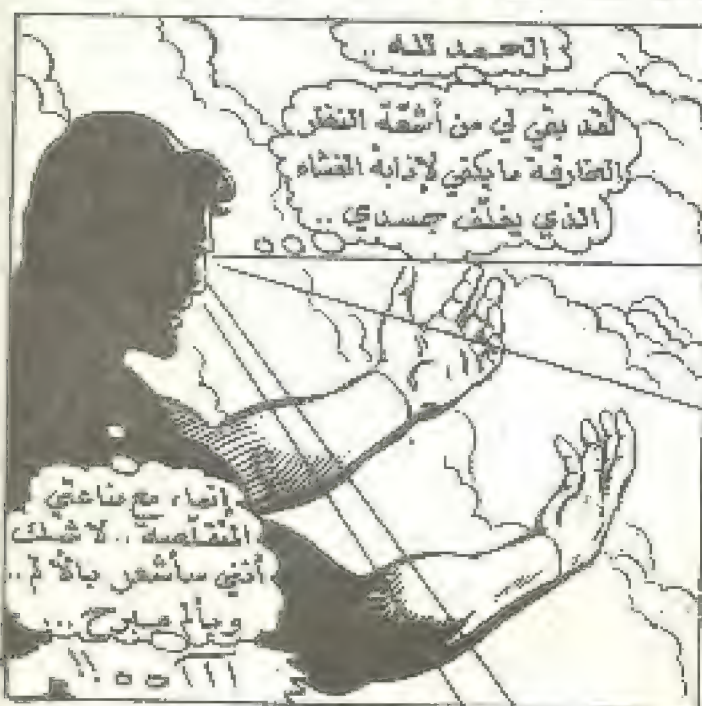 الحمد لله ..
لقد بقي لي من أشعّة النظر
الحارقة ما يكفي لإذابة الغشاء
الذي يغلّف جسدي ..
إنما، مع مناعتي
المتقلّصة .. لا شك
أنني سأشعر بالألم ..
وبألم مبرح ...
آآآه ه !!